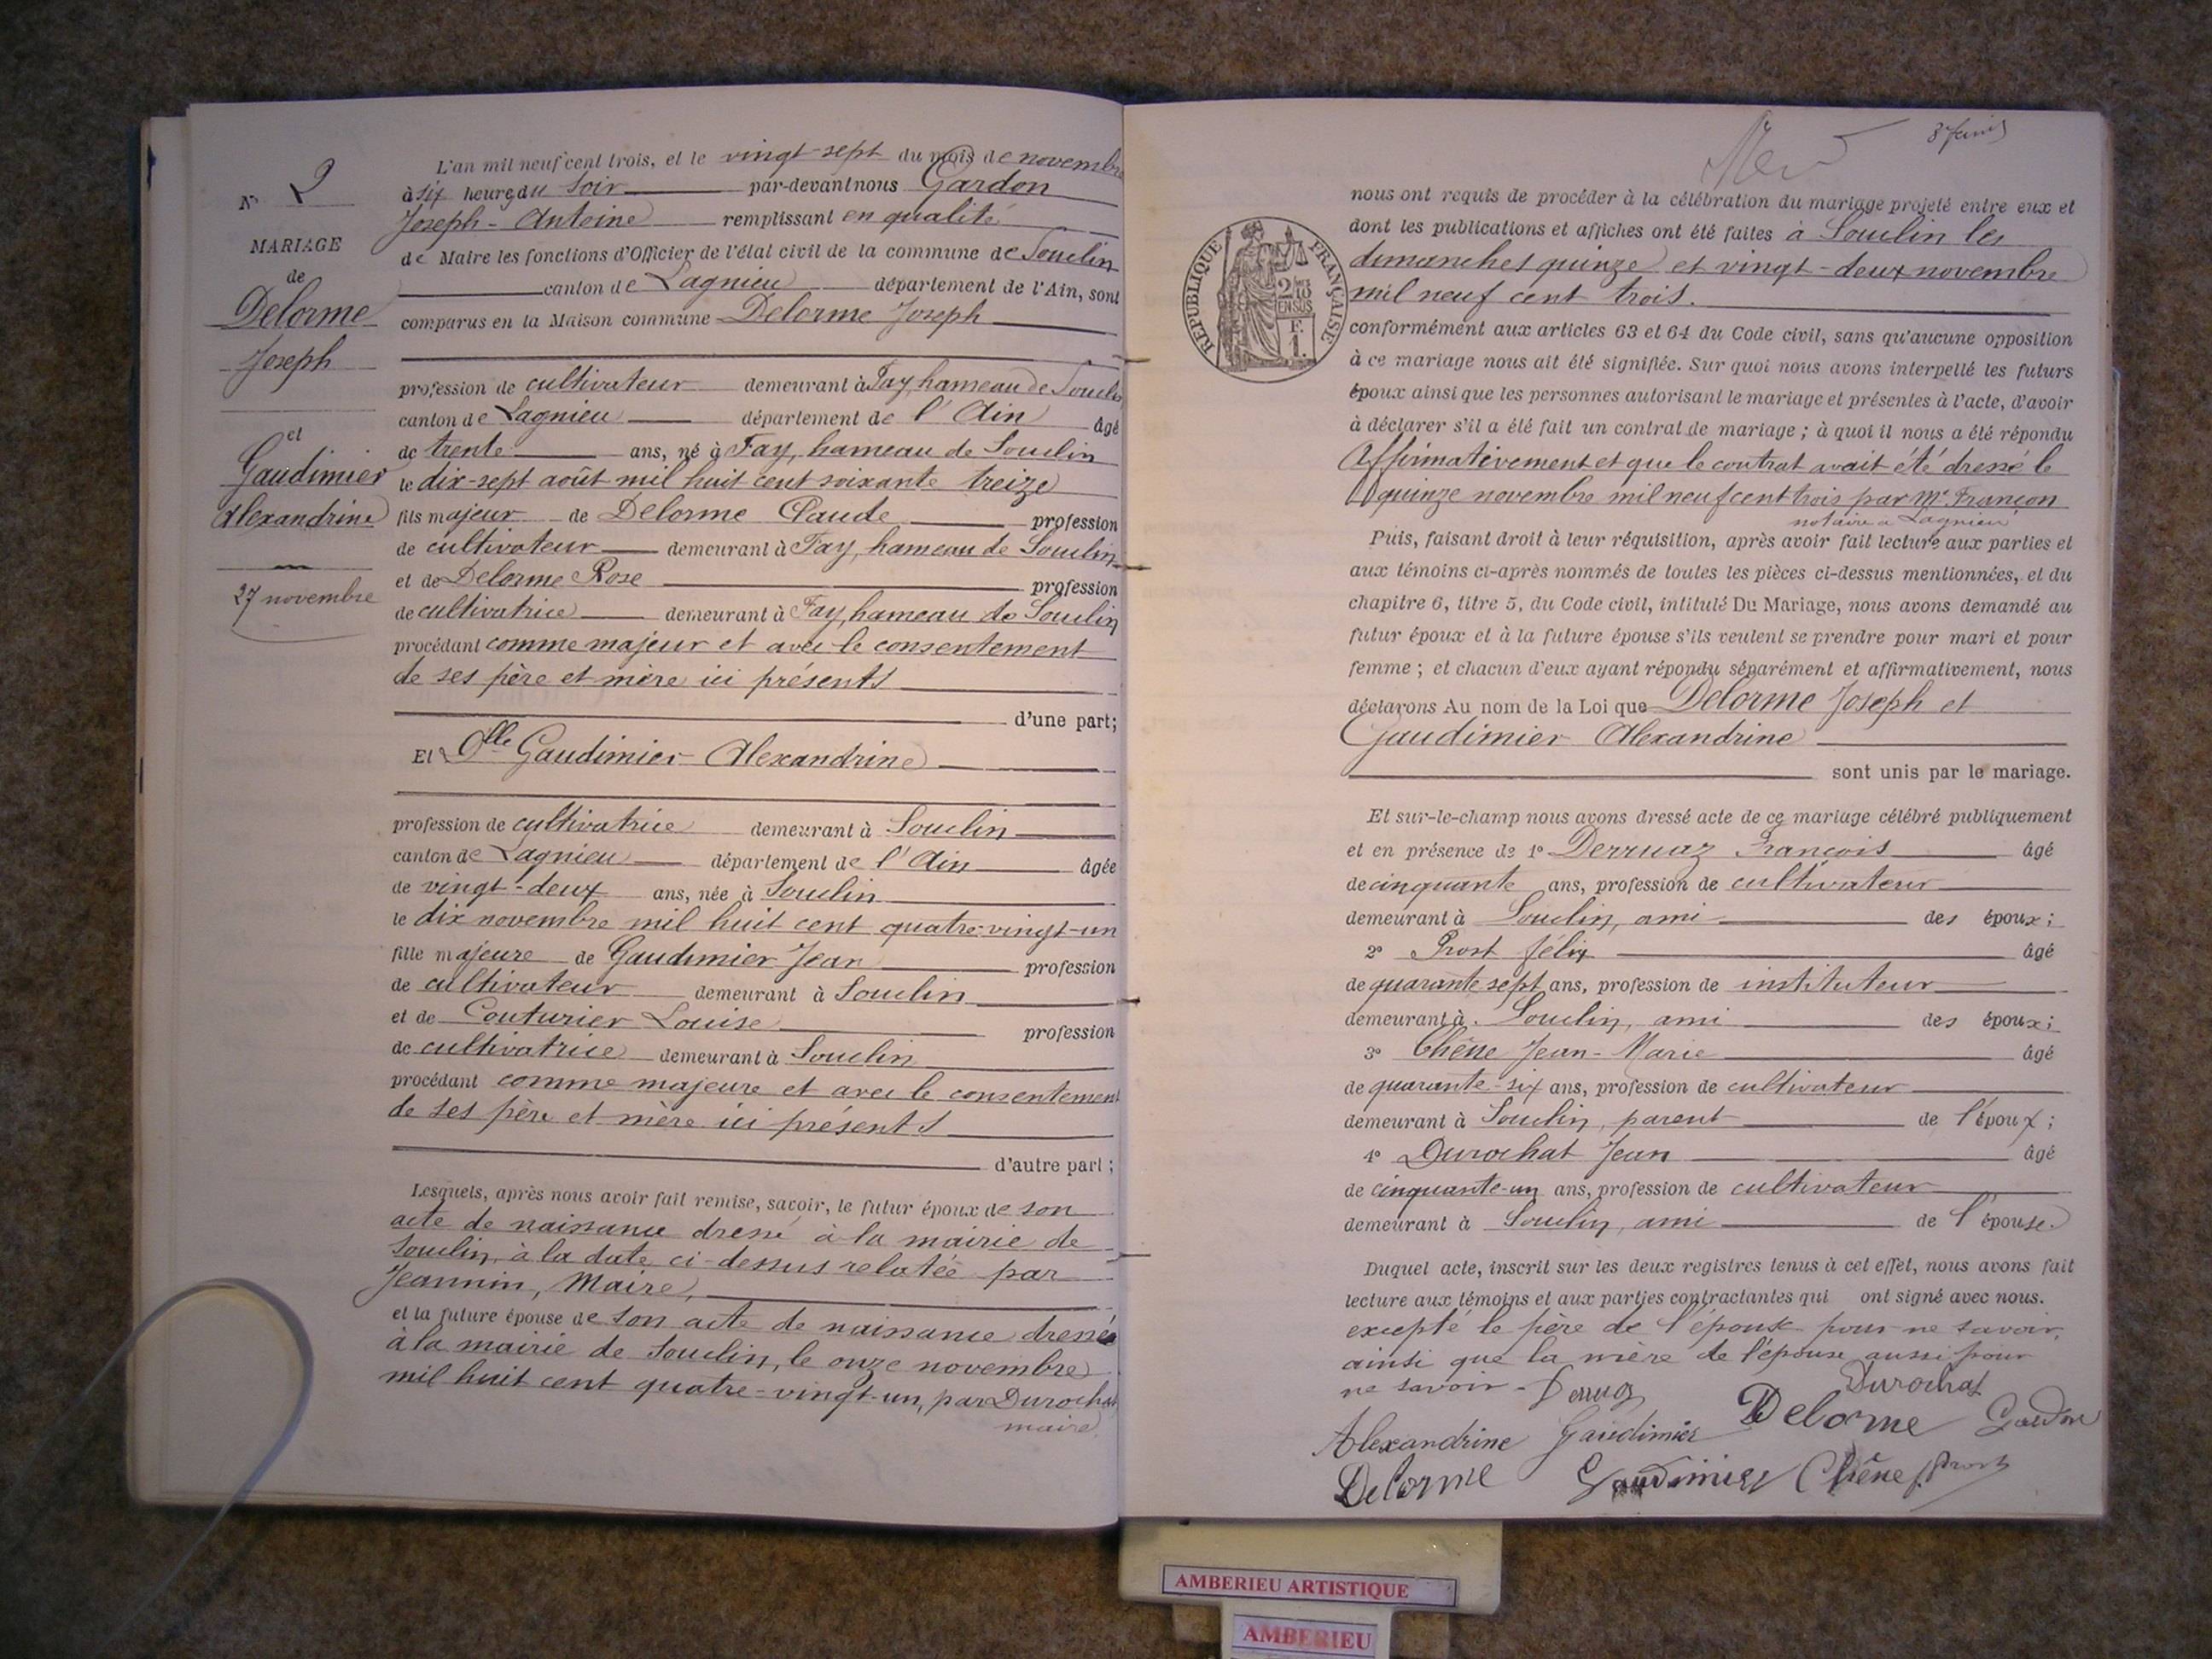 N° 2
MARIAGE
de
Delorme
Joseph
et
Gaudimier
Alexandrine
27 novembre
L'an mil neuf cent trois, et le vingt-sept du mois de novembre
à six heures du soir par-devant nous Gardon
Joseph-Antoine remplissant en qualité
de Maire les fonctions d'Officier de l'état civil de la commune de Souclin
canton de Lagnieu département de l'Ain, sont
comparus en la Maison commune Delorme Joseph
profession de cultivateur demeurant à Fay, hameau de Souclin
canton de Lagnieu département de l'Ain âgé
de trente ans, né à Fay, hameau de Souclin
le dix-sept août mil huit cent soixante treize
fils majeur de Delorme Claude profession
de cultivateur demeurant à Fay, hameau de Souclin
et de Delorme Rose profession
de cultivatrice demeurant à Fay, hameau de Souclin
procédant comme majeur et avec le consentement
de ses père et mère ici présents
d'une part;
Et Dlle Gaudimier Alexandrine
profession de cultivatrice demeurant à Souclin
canton de Lagnieu département de l'Ain âgée
de vingt-deux ans, née à Souclin
le dix novembre mil huit cent quatre-vingt-un
fille majeure de Gaudimier Jean profession
de cultivateur demeurant à Souclin
et de Couturier Louise profession
de cultivatrice demeurant à Souclin
procédant comme majeure et avec le consentement
de ses père et mère ici présents
d'autre part;
Lesquels, après nous avoir fait remise, savoir, le futur époux de son
acte de naissance dressé à la mairie de
Souclin, à la date ci-dessus relatée par
Jeannin, Maire,
et la future épouse de son acte de naissance dressé
à la mairie de Souclin, le onze novembre
mil huit cent quatre-vingt-un, par Durochat
maire.
nous ont requis de procéder à la célébration du mariage projeté entre eux et
dont les publications et affiches ont été faites à Souclin les
dimanches quinze et vingt-deux novembre
mil neuf cent trois.
RÉPUBLIQUE FRANÇAISE
2/10
EN SUS
F.
1.
conformément aux articles 63 et 64 du Code civil, sans qu'aucune opposition
à ce mariage nous ait été signifiée. Sur quoi nous avons interpellé les futurs
époux ainsi que les personnes autorisant le mariage et présentes à l'acte, d'avoir
à déclarer s'il a été fait un contrat de mariage; à quoi il nous a été répondu
Affirmativement et que le contrat avait été dressé le
quinze novembre mil neuf cent trois par Me Françon
notaire à Lagnieu
Puis, faisant droit à leur réquisition, après avoir fait lecture aux parties et
aux témoins ci-après nommés de toutes les pièces ci-dessus mentionnées, et du
chapitre 6, titre 5, du Code civil, intitulé Du Mariage, nous avons demandé au
futur époux et à la future épouse s'ils veulent se prendre pour mari et pour
femme; et chacun d'eux ayant répondu séparément et affirmativement, nous
déclarons Au nom de la Loi que Delorme Joseph et
Gaudimier Alexandrine
sont unis par le mariage.
Et sur-le-champ nous avons dressé acte de ce mariage célébré publiquement
et en présence de 1° Derruaz François âgé
de cinquante ans, profession de cultivateur
demeurant à Souclin, ami des époux;
2° Prost Félix âgé
de quarante sept ans, profession de instituteur
demeurant à Souclin, ami des époux;
3° Chêne Jean-Marie âgé
de quarante-six ans, profession de cultivateur
demeurant à Souclin, parent de l'époux;
4° Durochat Jean âgé
de cinquante-un ans, profession de cultivateur
demeurant à Souclin, ami de l'épouse.
Duquel acte, inscrit sur les deux registres tenus à cet effet, nous avons fait
lecture aux témoins et aux parties contractantes qui ont signé avec nous.
excepté le père de l'époux pour ne savoir,
ainsi que la mère de l'épouse aussi pour
ne savoir - Derruaz Durochat
Alexandrine Gaudimier Delorme Gardon
Delorme Gaudimier Chêne Prost
AMBERIEU ARTISTIQUE
AMBERIEU